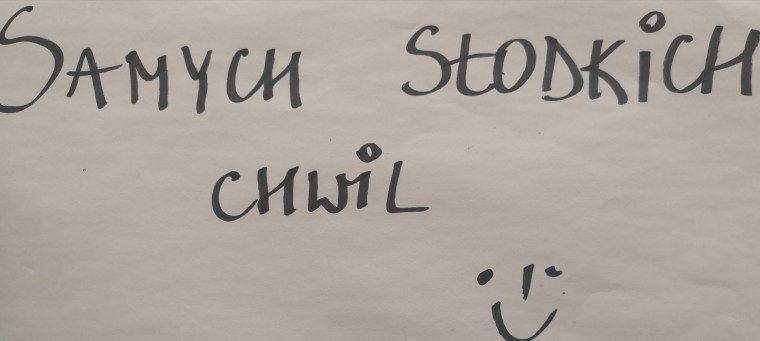 SAMYCH SŁODKICH
CHWIL